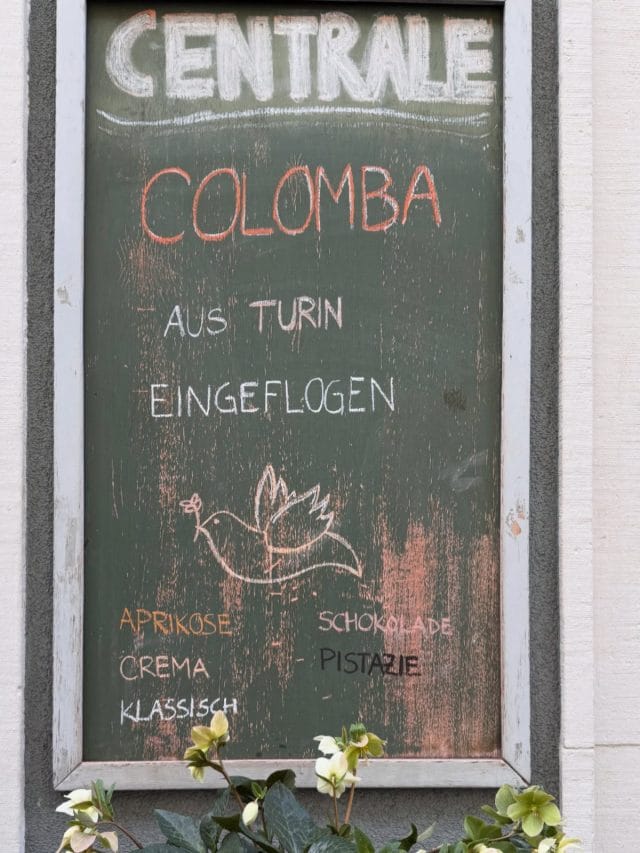 CENTRALE
COLOMBA
AUS TURIN
EINGEFLOGEN
APRIKOSE
CREMA
KLASSISCH
SCHOKOLADE
PISTAZIE